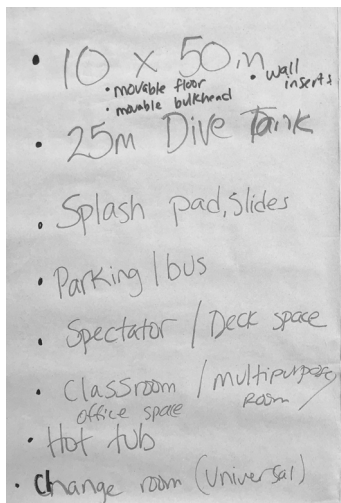 • 10 x 50m
• movable floor • wall inserts
• movable bulkhead
• 25m Dive Tank
• Splash pad, slides
• Parking / bus
• Spectator / Deck space
• Classroom / multipurpose room /
office space
• Hot tub
• Change room (Universal)